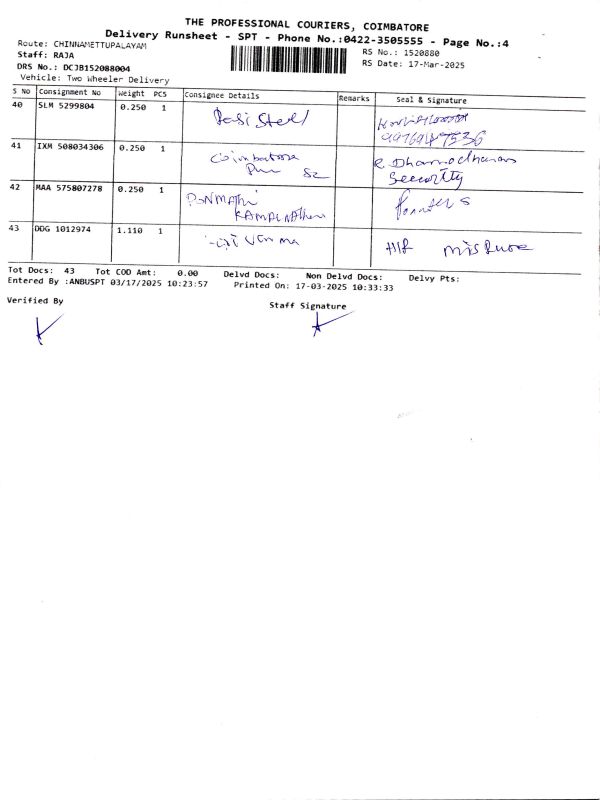 THE PROFESSIONAL COURIERS, COIMBATORE
Delivery Runsheet - SPT - Phone No.:0422-3505555 - Page No.:4
Route: CHINNAMETTUPALAYAM
RS No.: 1520880
Staff: RAJA
RS Date: 17-Mar-2025
DRS No.: DCJB152088004
Vehicle: Two Wheeler Delivery
S No Consignment No Weight PCS Consignee Details Remarks Seal & Signature
40 SLM 5299804 0.250 1 Steel
41 IXM 508034306 0.250 1 Coimbatore R. Dhamodharan
Security
42 MAA 575807278 0.250 1 PONMATHI
KAMALNATHAN
43 DDG 1012974 1.110 1
Tot Docs: 43 Tot COD Amt: 0.00 Delvd Docs: Non Delvd Docs: Delvy Pts:
Entered By :ANBUSPT 03/17/2025 10:23:57 Printed On: 17-03-2025 10:33:33
Verified By
Staff Signature